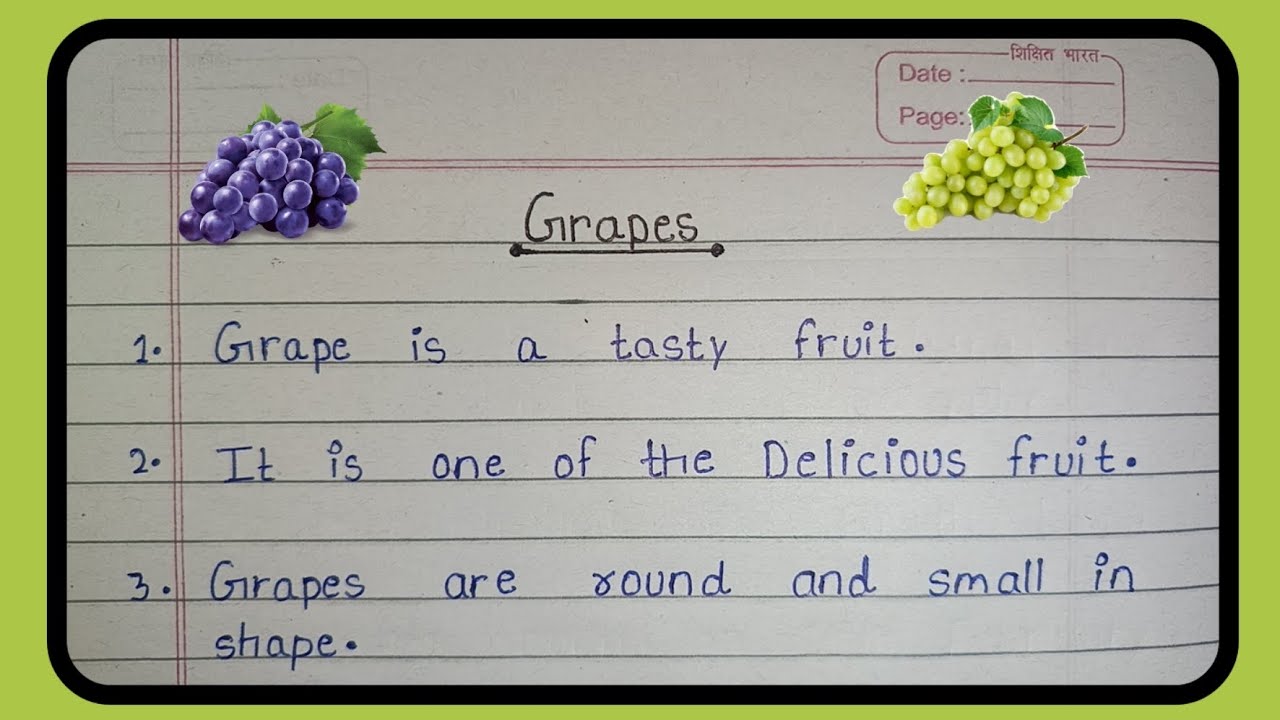 शिक्षित भारत
Date :
Page:
Grapes
1. Grape is a tasty fruit.
2. It is one of the Delicious fruit.
3. Grapes are round and small in
shape.